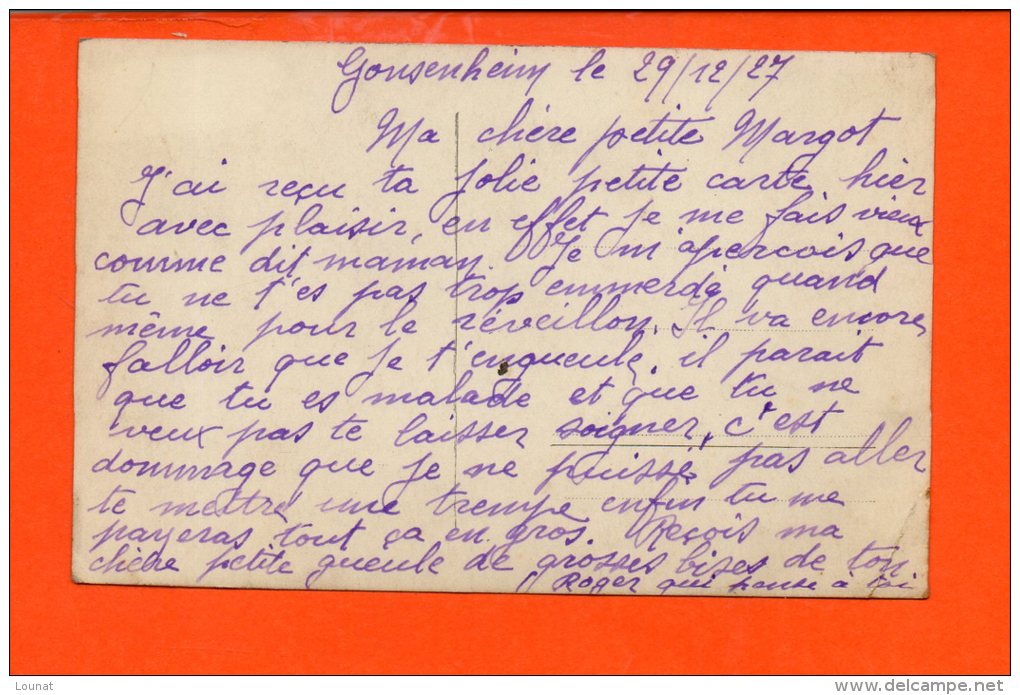 Gonsenheim le 29/12/27
Ma chère petite Margot
J'ai reçu ta jolie petite carte hier
avec plaisir, en effet je me fais vieux
comme dit maman. Je m'apercois que
tu ne t'es pas trop emmerdé quand
même pour le réveillon. Il va encore
falloir que je t'engueule, il parait
que tu es malade et que tu ne
veux pas te laisser soigner, c'est
dommage que je ne puisse pas aller
te mettre une trempe enfin tu me
payeras tout ça en gros. Reçois ma
chère petite gueule de grosses bises de ton
Roger qui pense à toi
Lounat
www.delcampe.net